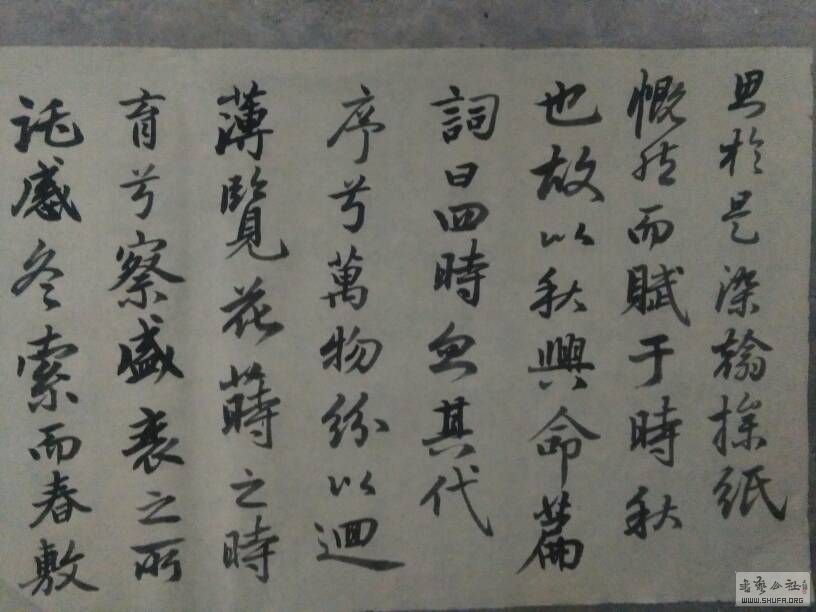 思於是染翰操紙
慨然而賦于時秋
也故以秋興命篇
詞曰四時忽其代
序兮萬物紛以迴
薄覽花蒔之時
育兮察盛衰之所
託感冬索而春敷
書藝公社
WWW.SHUFA.ORG